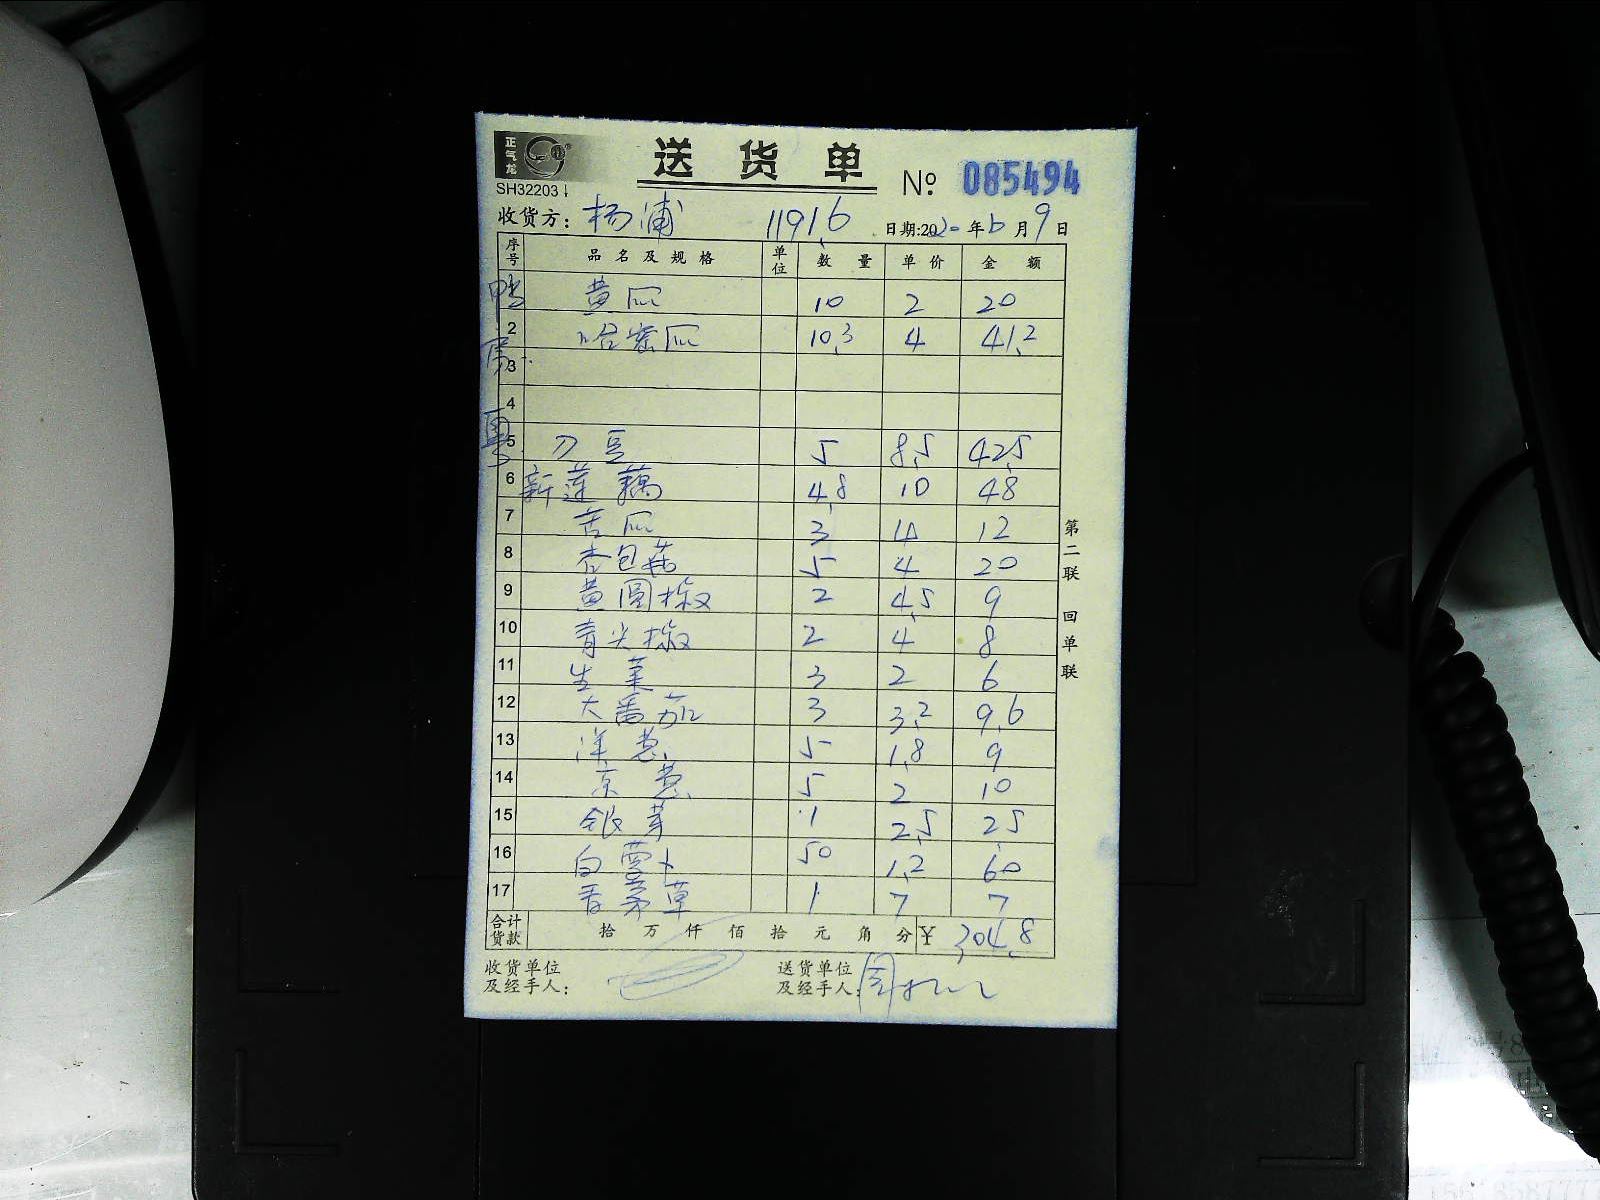 正气龙
送货单
№ 085494
SH32203
收货方: 杨浦 1191.6 日期:2020年6月9日
序号 品名及规格 单位 数量 单价 金额
黄瓜 10 2 20
2 哈密瓜 10.3 4 41.2
3
4
5 刀豆 5 8.5 42.5
6 新莲藕 4.8 10 48
7 苦瓜 3 4 12
8 杏包菇 5 4 20
9 黄圆椒 2 4.5 9
10 青尖椒 2 4 8
11 生菜 3 2 6
12 大番茄 3 3.2 9.6
13 洋葱 5 1.8 9
14 京葱 5 2 10
15 银芽 1 2.5 2.5
16 白萝卜 50 1.2 60
17 香茅草 1 7 7
合计货款 拾 万 仟 佰 拾 元 角 分 ¥ 304.8
收货单位及经手人:
送货单位及经手人:
第二联 回单联